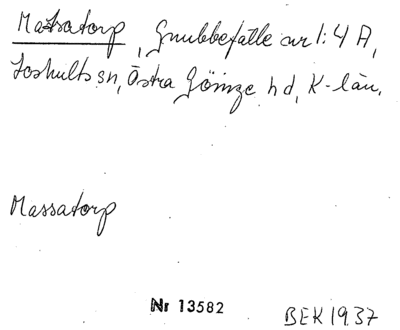 Massatorp, Gnubbefälle nr 1:4 A,
Loshults sn, Östra Göinge hd, K-län.
Massatorp
Nr 13582
BEK 1937